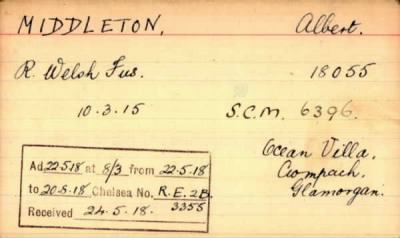 MIDDLETON, Albert.
R. Welsh Fus. 18055
10.3.15 S.C.M. 6396.
Ocean Villa,
Cwmpach.
Glamorgan.
Ad 22518 at 8/3 from 22.5.18
to 20-8-18 Chelsea No. R.E.2B.
Received 24.5.18. 3355